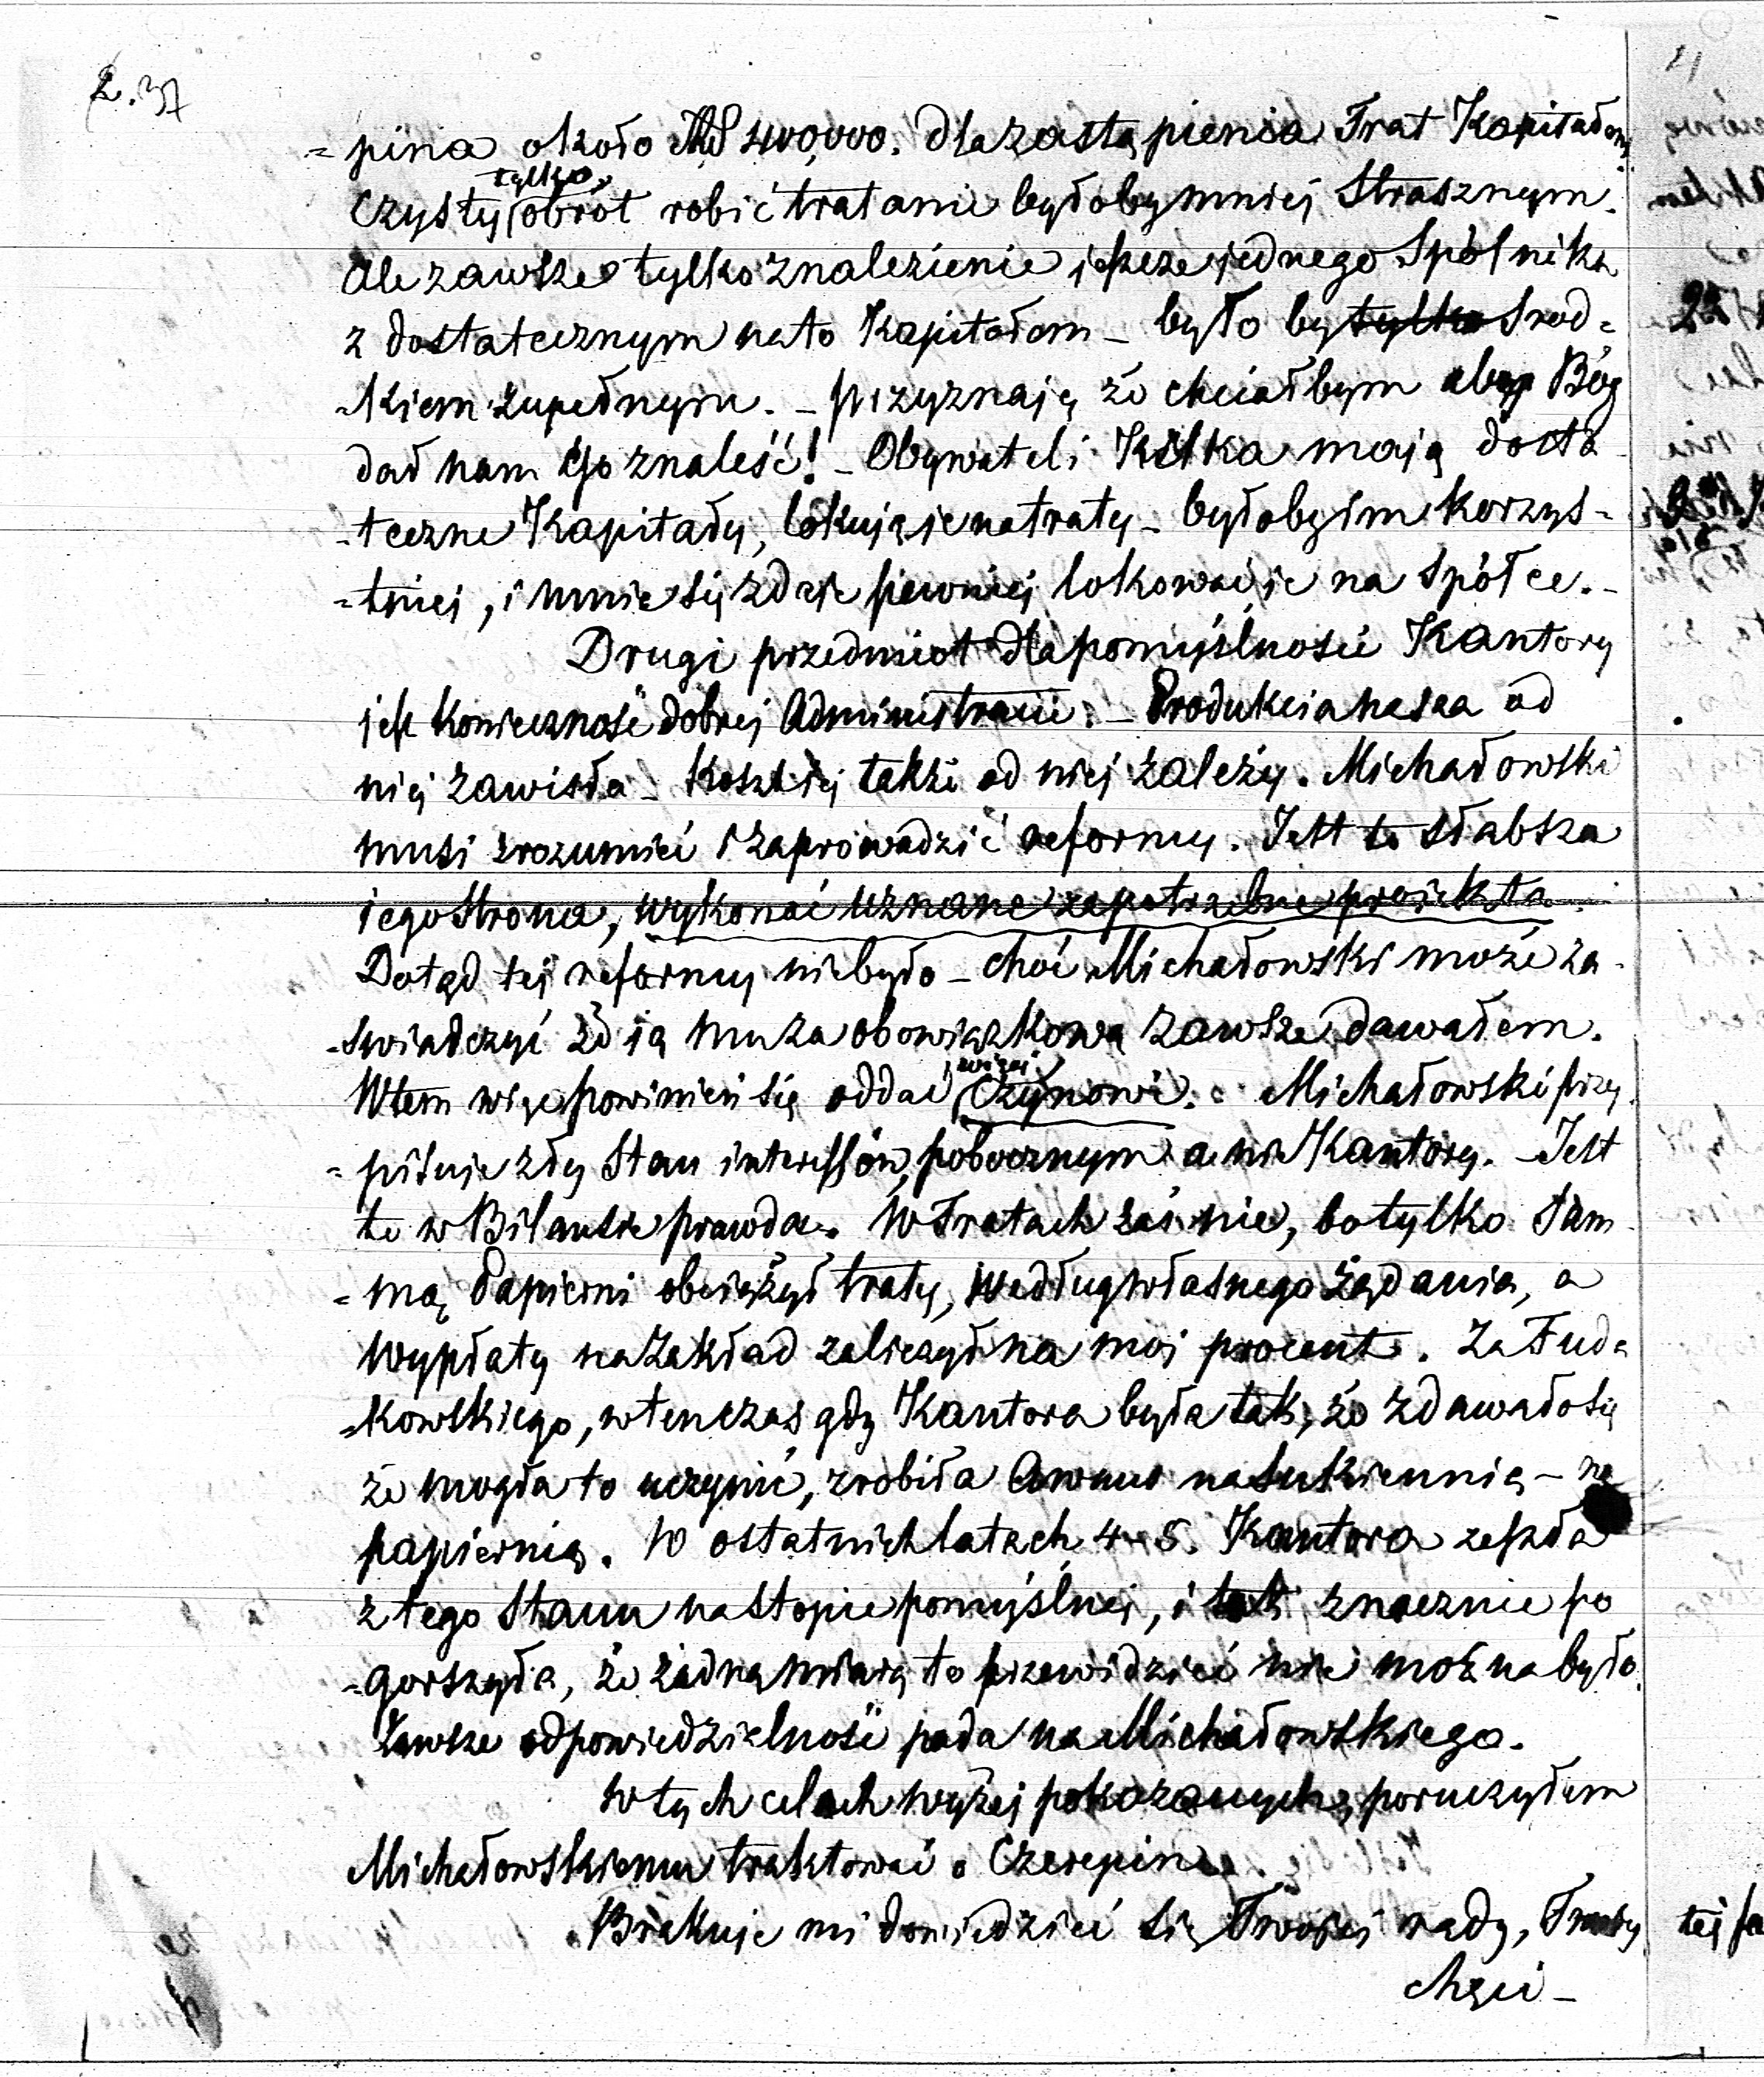 2. 37
= pina około RS 400,000. Dla zastąpienia Trat Kapitałem
tylko
czysty obrót robić tratami byłoby mniej strasznym.
ale zawsze tylko znalezienie jeszcze jednego Spólnika
z dostatecznym na to Kapitałem – było by tylko środ=
-kiem zupełnym. – przyznaję że chciałbym aby Bóg
dał nam Go znaleść! – Obywateli Kilka mają dosta
-teczne Kapitały, lokują je na traty – byłoby im korzys=
=tniej, i mnie się zdaje pewniej lokować je na Spółce. –
Drugi przedmiot dla pomyślności Kantory
jest konieczność dobrej Administracii. – Produkcia nasza od
niej zawisła – Koszt jej także od niej zależy. Michałowski
musi zrozumieć i zaprowadzić reformy. Jest to słabsza
iego strona, wykonać uznane za potrzebne proiekta
Dotąd tej reformy nie było – choć Michałowski może za-
-świadczyć że ią mu za obowiązkową zawsze dawałem.
W tem więc powinien się oddać Czynowi. Michałowski przy
= pisuje zły Stan interessów pobocznym a nie Kantory. Jest
to w Bilansie prawda. W Tratach zaś nie, bo tylko Sum
= mą Papierni obciążył traty, według własnego żądania, a
wypłaty na Zakład zaliczył na moj procent. Za Fuda
=kowskiego, wtenczas gdy Kantora była tak, że zdawało się
że mogła to uczynić, zrobiła Awans na Sukiennią – na
papiernią. W ostatnich latach 4-5. Kantora zeszła
z tego Stanu na stopie pomyślnej, i tak znacznie po
=gorszyła, że żadną miarą to przewidzieć nie można było.
Zawsze odpowiedzialność pada na Michałowskiego.
W tych celach wyżej pokazanych, poruczyłem
Michałowskiemu traktować o Czerepin
Brakuje mi dowiedzieć się Twojej rady, Twoiey
chęci –